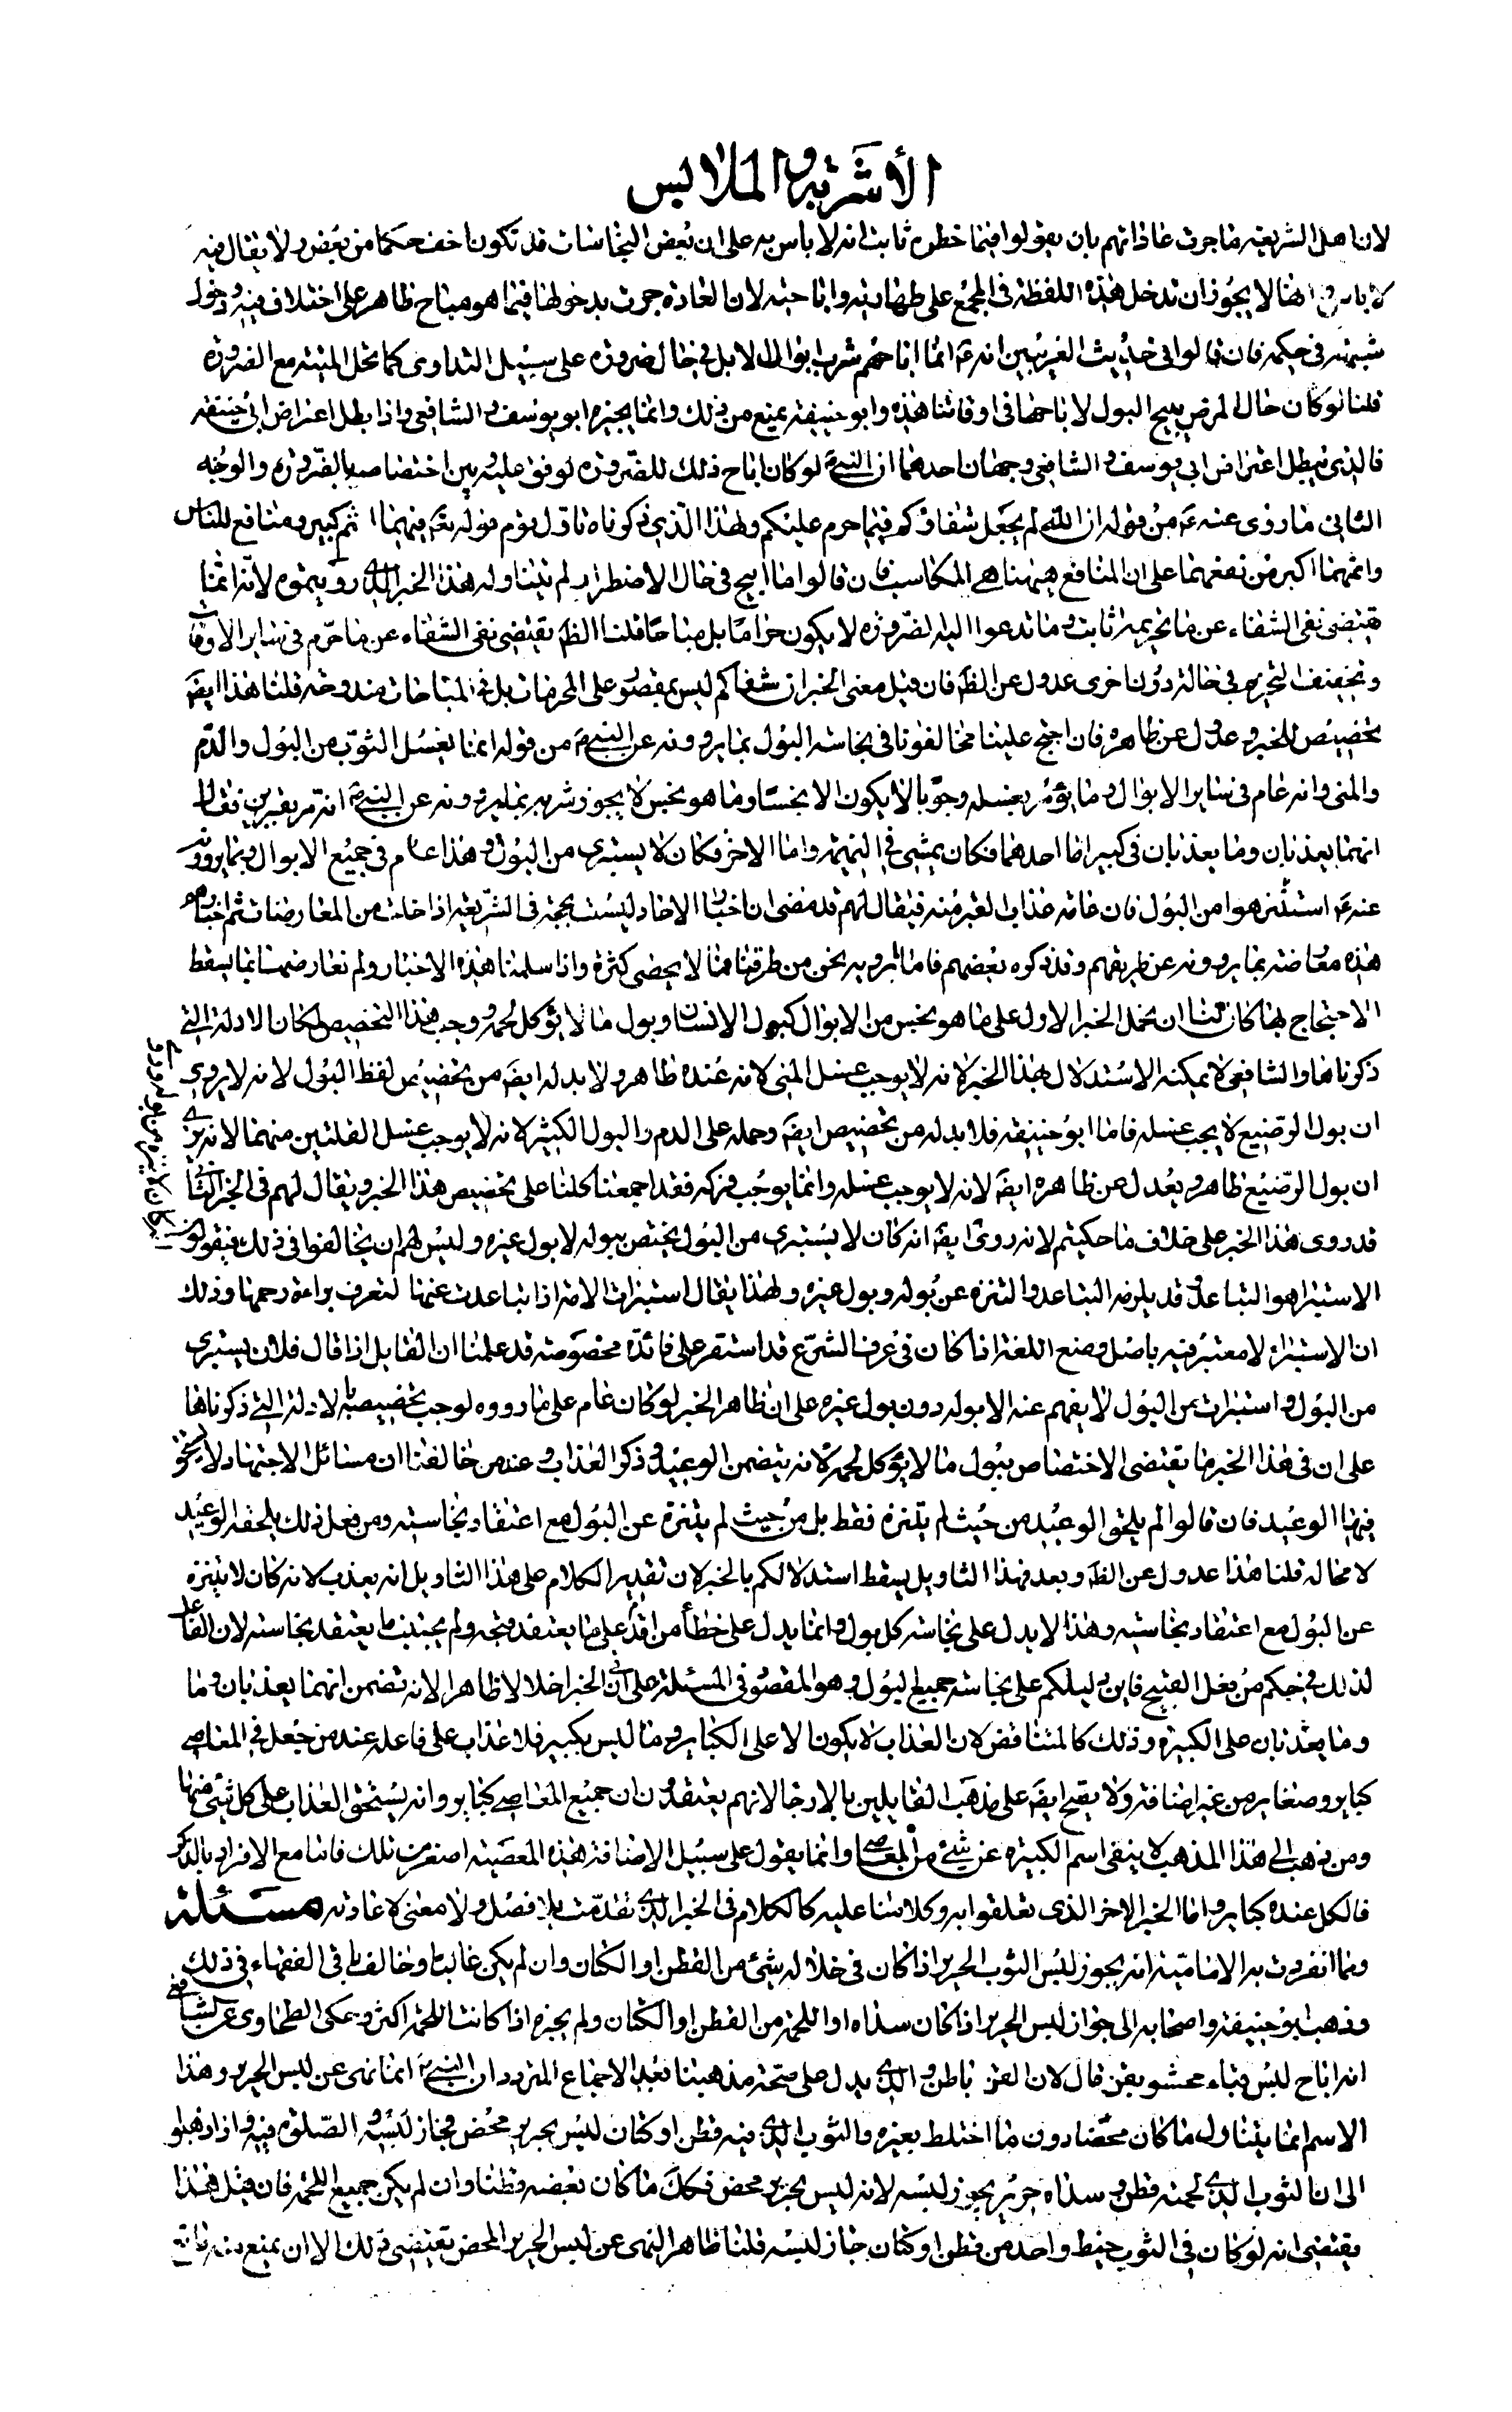 الأشربة والملابس
لان اهل الشريعة ما جرت عاداتهم بان يقولوا فيما خطره ثابت انه لا باس به على ان بعض النجاسات قد تكون اخف حكما من بعض ولا يقال فيه
لا باس به وايضا لا يجوز ان تدخل هذه اللفظة في المجمع على طهارته واباحته لان العادة جرت بدخولها فيما هو مباح ظاهر على اختلاف فيه ودخول
شبهة في حكمه فان قالوا في حديث العرنيين انه ع انما اباحهم شرب ابوال الابل في حال الضرورة على سبيل التداوى كما تحل الميتة مع الضرورة
قلنا لو كان حال المرض يبيح البول لاباحها في اوقاتنا هذه وابو حنيفة يمنع من ذلك وانما يجيزه ابو يوسف والشافعي واذا بطل اعتراض ابي حنيفة
فالذي يبطل اعتراض ابي يوسف والشافعي وجهان احدهما ان النبي لو كان اباح ذلك للضرورة لوقف عليه وبين اختصاصه بالضرورة والوجه
الثاني ما روى عنه ع من قوله ان الله لم يجعل شفاؤكم فيما حرم عليكم ولهذا الذي ذكرناه تاول قوم قوله تع فيهما اثم كبير ومنافع للناس
واثمهما اكبر من نفعهما على ان المنافع هيهنا هي المكاسب فان قالوا ما ابيح في حال الاضطرار لم يتناوله هذا الخبر الذي رويتموه لانه انما
يقتضى نفى الشفاء عن ما تحريمه ثابت وما تدعوا اليه لضرورة لا يكون حراما بل مباحا قلنا الظ يقتضى نفى الشفاء عن ما حرم في ساير الاوقات
وتخفيف التحريم في حالة دون اخرى عدول عن الظ فان قيل معنى الخبر ان شفاكم ليس بمقصور على المحرمات بل في المباحات مندوحة قلنا هذا ايض
تخصيص للخبر وعدول عن ظاهره فان احتج علينا مخالفونا في نجاسة البول بما يروونه عن النبي ص من قوله انما يغسل الثوب من البول والدم
والمنى وانه عام في ساير الابوال وما يؤمر بغسله وجوبا لا يكون الا نجسا وما هو نجس لا يجوز شربه بما يروونه عن النبي ص انه مر بقبرين فقال
انهما يعذبان وما يعذبان في كبير اما احدهما فكان يمشي في النميمة واما الاخر فكان لا يستبرى من البول وهذا عام في جميع الابوال وبما يروونه
عنه ع استنزهوا من البول فان عامة عذاب القبر منه فيقال لهم قد مضى ان اخبار الاحاد ليست بحجة في الشريعة اذا خلت من المعارضات ثم اخباركم
هذه معارضة بما يروونه عن طريقهم وقد ذكره بعضهم فاما ما نرويه نحن من طرقنا فما لا يحصى كثرة واذا سلمنا هذه الاخبار ولم نعارضها بما يسقط
الاحتجاج بها كان لنا ان نحمل الخبر الاول على ما هو نجس من الابوال كبول الانسان وبول ما لا يؤكل لحمه ووجب هذا التخصيص لمكان الادلة التي
ذكرناها والشافعي لا يمكنه الاستدلال بهذا الخبر لانه لا يوجب غسل المنى لانه عنده طاهر ولا بد له ايض من تخصيص لفظ البول لانه لا يروي
ان بول الرضيع لا يجب غسله فاما ابو حنيفة فلا بد له من تخصيص ايض وحمله على الدم والبول الكثير لانه لا يوجب غسل القليلين منهما لانه يرى
ان بول الرضيع طاهر ويعدل عن ظاهره ايض لانه لا يوجب غسله وانما يوجب فركه فقد اجمعنا كلنا على تخصيص هذا الخبر ويقال لهم في الخبر الثاني
قد روى هذا الخبر على خلاف ما حكيتم لانه روى ايض انه كان لا يستبري من البول يختص ببوله لا بول غيره وليس لهم ان يخالفوا في ذلك فيقولوا
الاستبرا هو التباعد وقد يلزمه التباعد والتنزه عن بوله وبول غيره ولهذا يقال استبرات الامة اذا تباعدت عنها لتعرف براءة رحمها وذلك
ان الاستبراء لا معتبر فيه باصل وضع اللغة اذا كان في عرف الشرع قد استقر على فائدة مخصوصة قد علمنا ان القايل اذا قال فلان يستبري
من البول واستبرات من البول لا يفهم عنه الا بوله دون بول غيره على ان ظاهر الخبر لو كان عام على ما رووه لوجب تخصيصه بالادلة التي ذكرناها
على ان في هذا الخبر ما يقتضى الاختصاص ببول ما لا يؤكل لحمه لانه يتضمن الوعيد وذكر العذاب وعند من خالفنا ان مسائل الاجتهاد لا يستحق
فيها الوعيد فان قالوا لم يلحق الوعيد من حيث لم يتنزه فقط بل من حيث لم يتنزه عن البول مع اعتقاد نجاسته ومن فعل ذلك يلحقه الوعيد
لا محالة قلنا هذا عدول عن الظ وبعد فهذا التاويل يسقط استدلالكم بالخبر لان تقدير الكلام على هذا التاويل انه يعذب لانه كان لا يتنزه
عن البول مع اعتقاد نجاسته وهذا لا يدل على نجاسة كل بول وانما يدل على خطأ من اقدم على ما يعتقد قبحه ولم يجتنب ما يعتقد نجاسته لان الفاعل
لذلك في حكم من فعل القبيح فاين دليلكم على نجاسة جميع البول وهو المقصود في المسئلة على ان الخبر اخلالا ظاهرا لانه تضمن انهما يعذبان وما
وما يعذبان على الكبيرة وذلك كالمتناقض لان العذاب لا يكون الا على الكباير وما ليس بكبير فلا عذاب على فاعله عند من جعل في المعاصي
كباير وصغاير من غير اضافة ولا يقبح ايض على مذهب القايلين بالارجا لانهم يعتقدون ان جميع المعاصي كباير وانه يستحق العذاب على كل شئ منها
ومن ذهب الى هذا المذهب لا ينفى اسم الكبيرة عن شئ من المعاصي وانما يقول على سبيل الاضافة هذه المعصية اصغر من تلك فاما مع الافراد بالذكر
فالكل عنده كباير واما الخبر الاخر الذى تعلقوا به وكلامنا عليه كالكلام في الخبر الذي تقدمت بلا فصل ولا معنى لاعادته مسئلة
ومما انفردت به الامامية انه يجوز لبس الثوب الحرير اذا كان في خلاله شئ من القطن او الكتان وان لم يكن غالبا وخالف باقي الفقهاء في ذلك
وذهب ابو حنيفة واصحابه الى جواز لبس الحرير اذا كان سداه او اللحمة من القطن او الكتان ولم يجزه اذا كانت اللحمة اكثر وحكى الطحاوى عن الشافعي
انه اباح لبس قباء محشو بقز قال لان القز باطن والذي يدل على صحة مذهبنا بعد الاجماع المتردد ان النبي ص انما نهى عن لبس الحرير وهذا
الاسم انما يتناول ما كان محضا دون ما اختلط بغيره والثوب الذي فيه قطن او كتان ليس بحرير محض فجاز لبسه والصلوة فيه واذا ذهبوا
الى ان الثوب الذي لحمته قطن وسداه حرير يجوز لبسه لانه ليس بحرير محض فكك ما كان بعضه قطنا وان لم يكن جميع اللحمة فان قيل فهذا
يقتضى انه لو كان في الثوب خيط واحد من قطن او كتان جاز لبسه قلنا ظاهر النهى عن لبس الحرير المحض يقتضى ذلك الا ان يمنع منه مانع